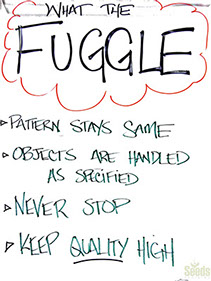 WHAT THE
FUGGLE
▹PATTERN STAYS SAME
▹OBJECTS ARE HANDLED
AS SPECIFIED
▹NEVER STOP
▹KEEP QUALITY HIGH
Seeds